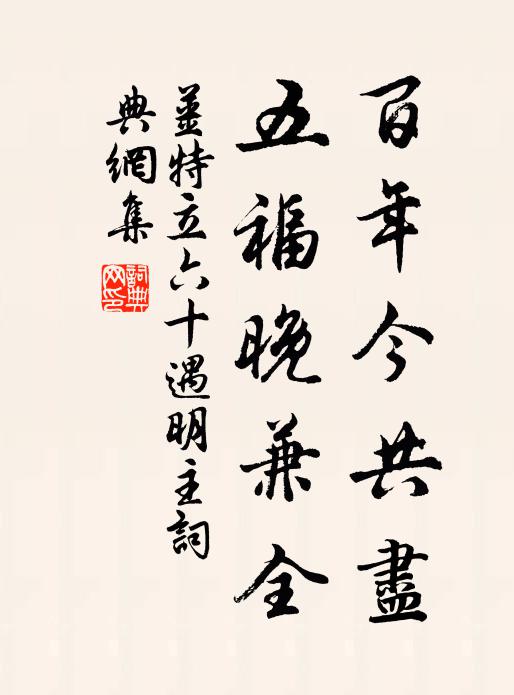 百年今共盡
五福晚兼全
姜特立六十遇明主詞
典網集
詞典網印